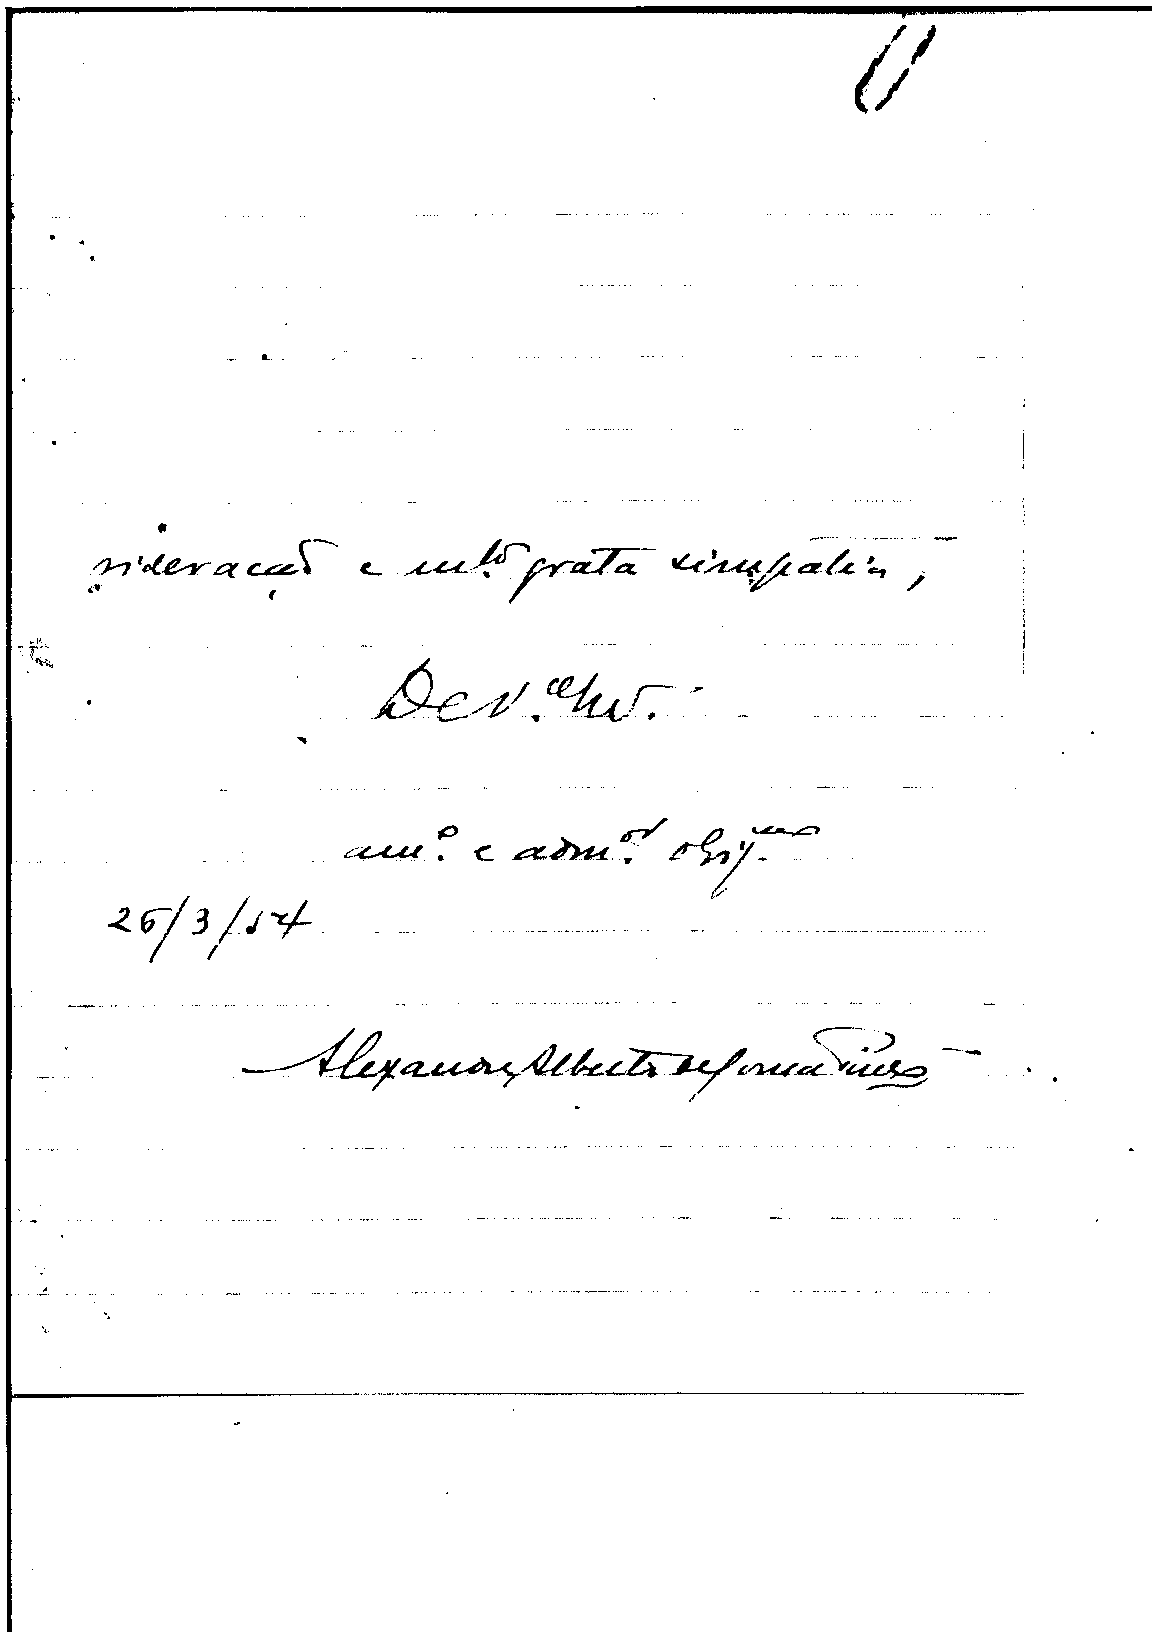 sideração e mtº grata simpatia,
De V. Ex.
amº. e admºr. obrigmo
26/3/54
Alexandre Alberto de Sousa Pinto